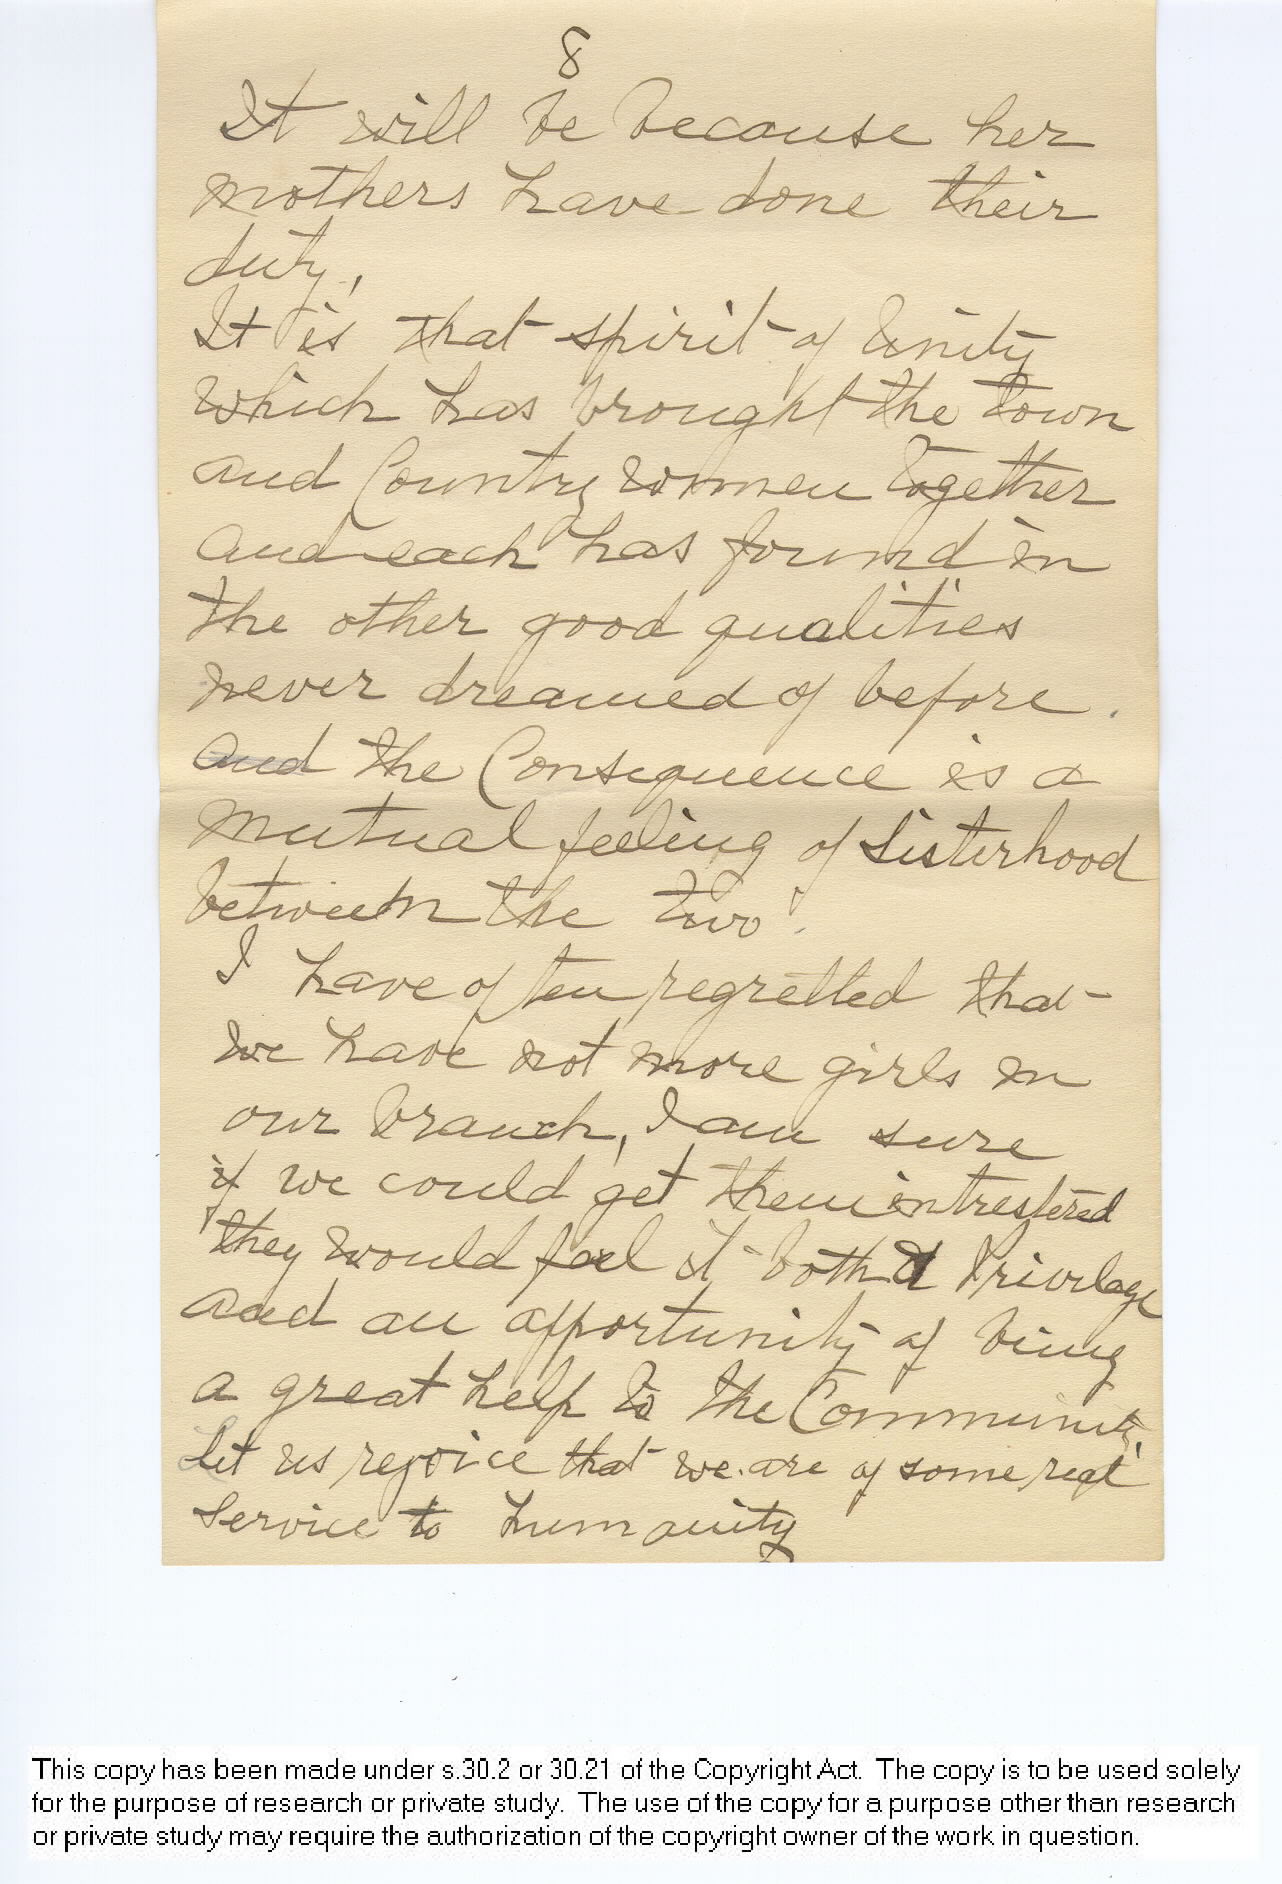 8
It will be because her
mothers have done their
duty,
It is that spirit of Unity
which has brought the town
and Country women together
and each has found in
the other good qualities
never dreamed of before.
and the Consequence is a
mutual feeling of Sisterhood
between the two.
I have often regretted that
we have not more girls in
our branch, I am sure
if we could get them intrestered
they would feel it both a Privilage
and an opportunity of being
a great help to the Community.
Let us rejoice that we are of some real
Service to humanity
This copy has been made under s.30.2 or 30.21 of the Copyright Act. The copy is to be used solely
for the purpose of research or private study. The use of the copy for a purpose other than research
or private study may require the authorization of the copyright owner of the work in question.